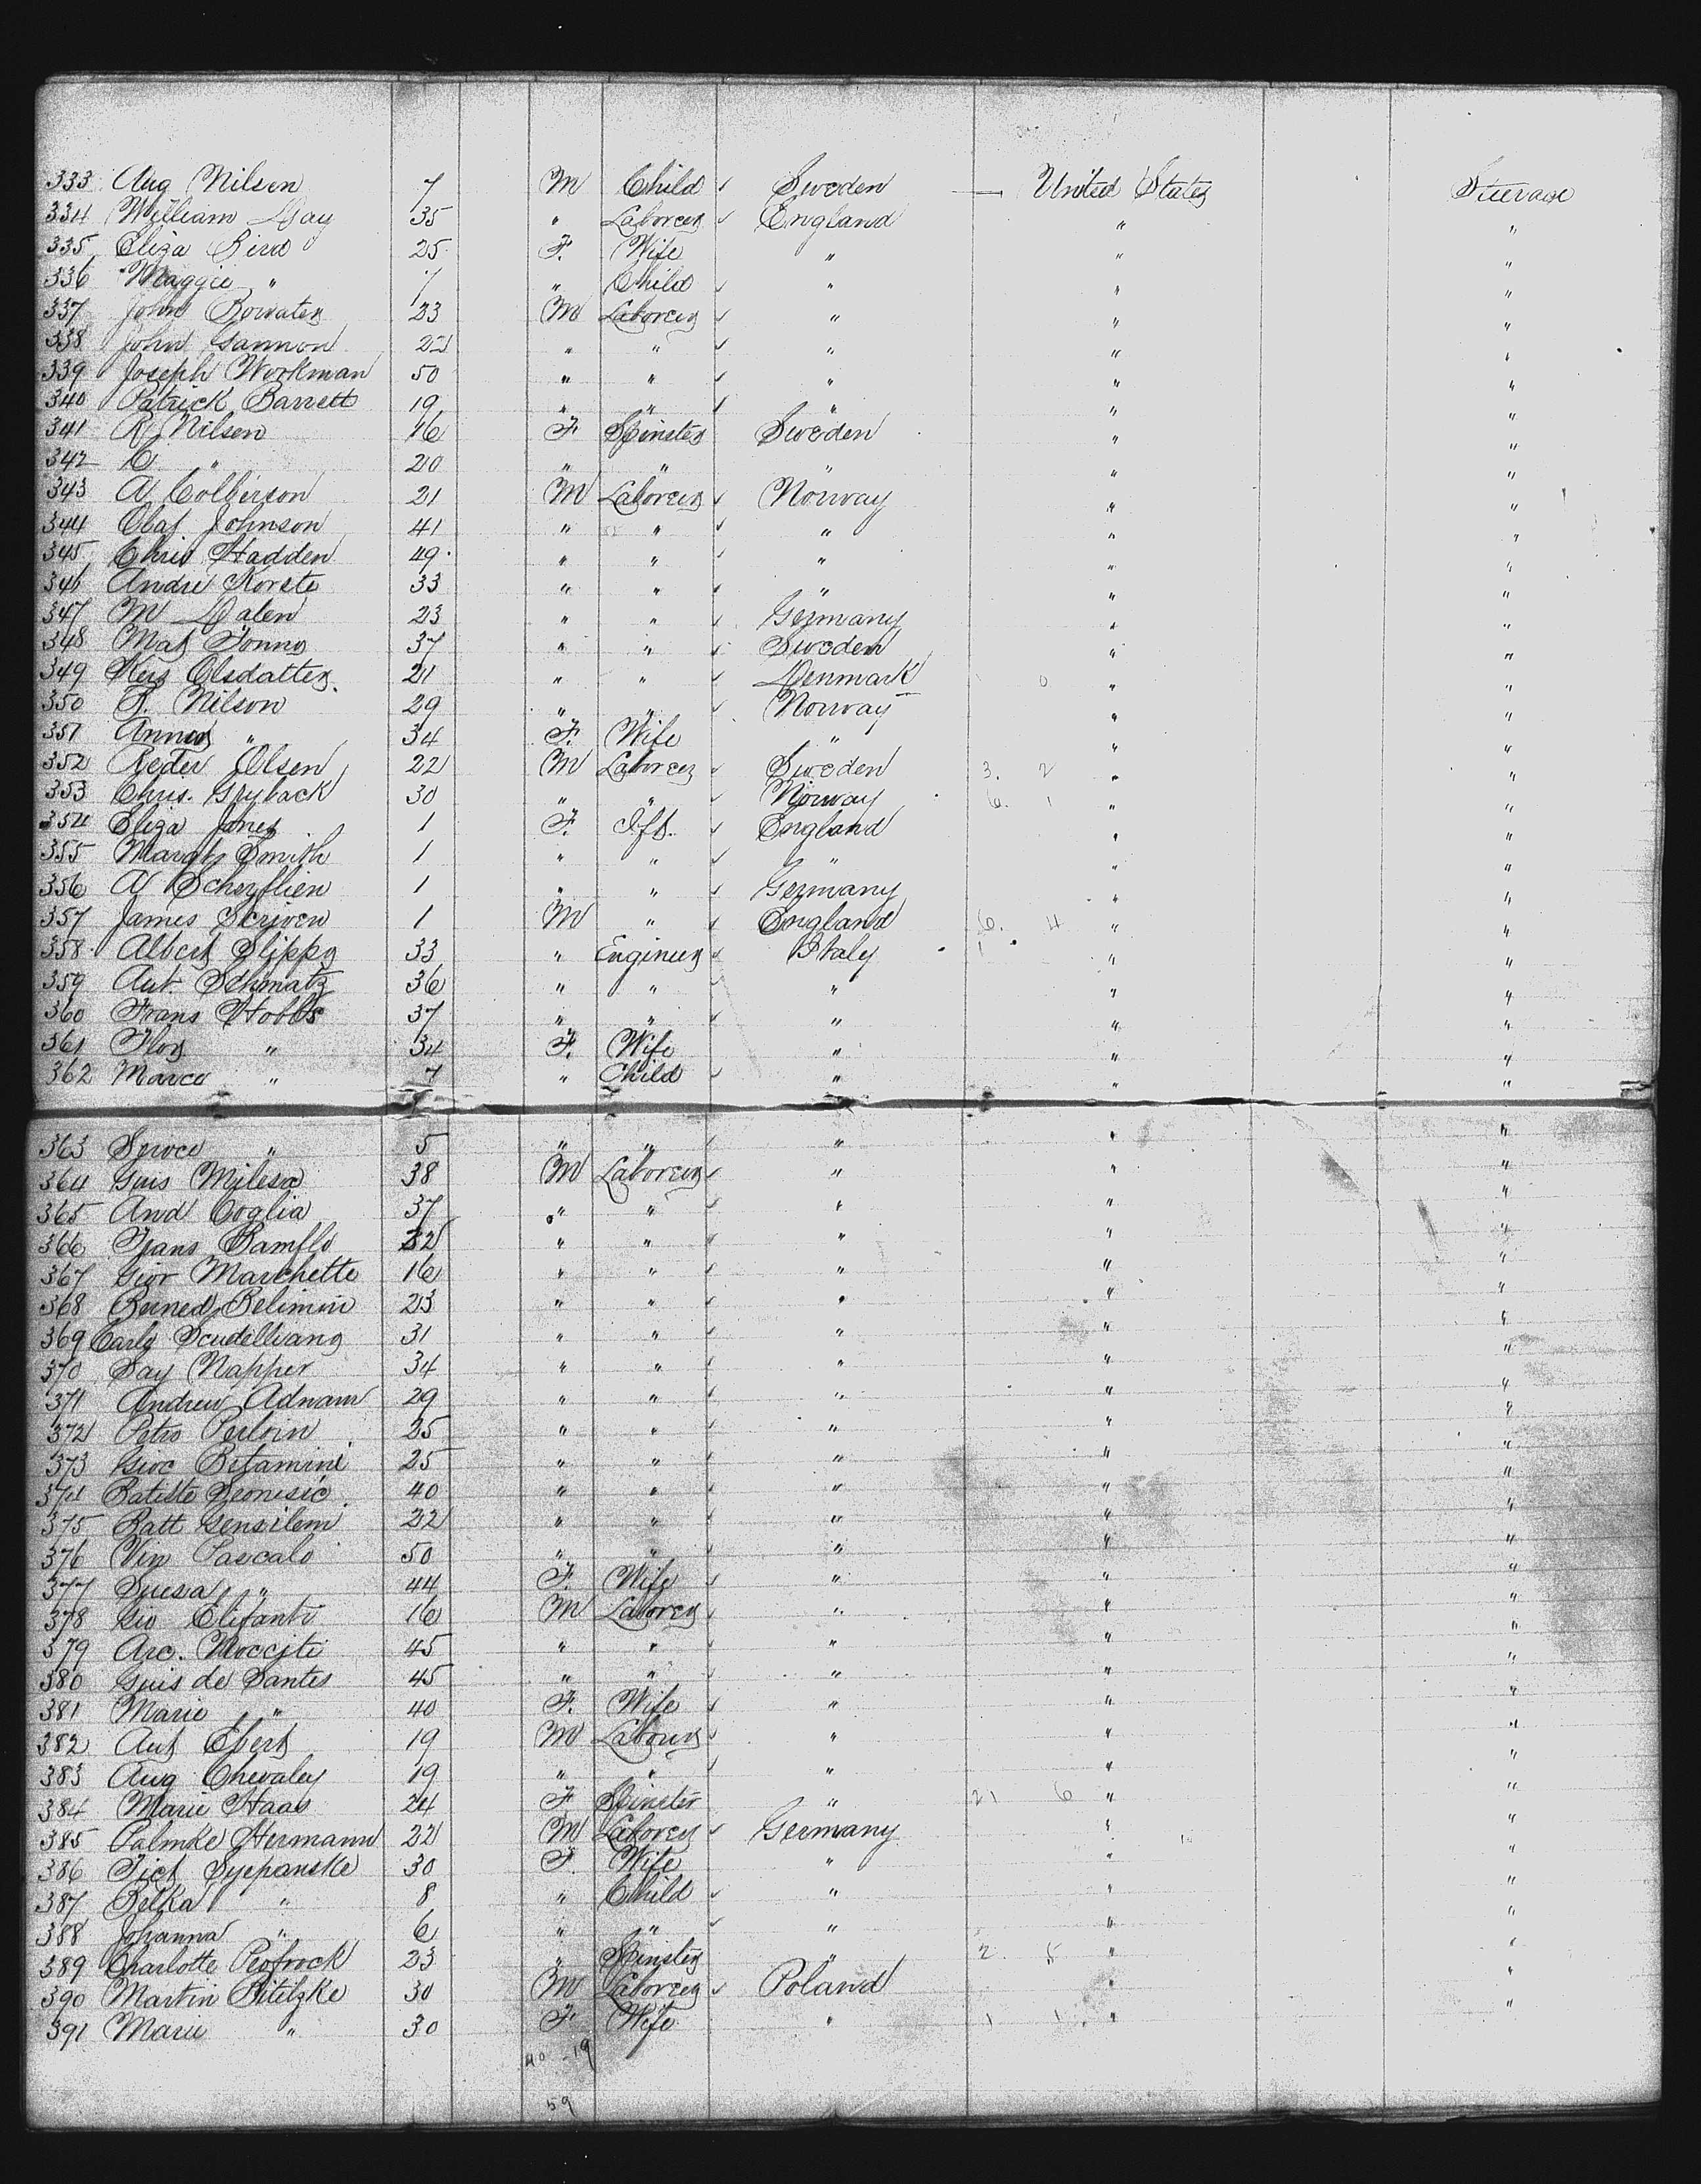 333 Aug Nilsen 7 M Child Sweden — United States Steerage
334 William Day 35 " Laborer England " "
335 Eliza Bird 25 F. Wife " " "
336 Maggie " 7 " Child " " "
337 John Bowater 23 M Laborer " " "
338 John Gannon " " " " "
339 Joseph Workman 50 " " " " "
340 Patrick Barrett 19 " " " " "
341 Nilsen 16 F Spinster Sweden " "
342 " 20 " " " " "
343 A Colberson 21 M Laborer Norway " "
344 Olaf Johnson 41 " " " " "
345 Chris Hadden 49 " " " " "
346 Andre Korste 33 " " " " "
347 M Dalen 23 " " Germany " "
348 Mats 37 " " Sweden " "
349 Olsdatter 21 " " Denmark 0 " "
350 Nilson 29 " " Norway " "
351 Anna " 34 F. Wife " " "
352 Peder Olsen 22 M Laborer Sweden 3. 2 " "
353 Chris. Gryback 30 " " Norway 6. 1 " "
354 Eliza Jones 1 F. Ift. England " "
355 Margt Smith 1 " " " " "
356 A 1 " " Germany " "
357 James Scriven 1 M " England 6. 4 " "
358 Albert Slippy 33 " Engineer Italy 1 " "
359 Ant. Schmatz 36 " " " " "
360 Frans Hobbs 37 " " " " "
361 Flor " 34 F. Wife " " "
362 Marco " 7 " Child " " "
363 " 5 " " " " "
364 Guis Milesa 38 M Laborer " " "
365 And Coglia 37 " " " " "
366 Bamflo 32 " " " " "
367 Gior Marchette 16 " " " " "
368 Belimini 23 " " " " "
369 Carlo 31 " " " " "
370 Say Napper 34 " " " " "
371 Andrew Adnam 29 " " " " "
372 Petro Perloin 25 " " " " "
373 Betamini 25 " " " " "
374 Batiste 40 " " " " "
375 Batt Gensilem 22 " " " " "
376 Vin Pascalo 50 " " " " "
377 " 44 F. Wife " " "
378 Gio Elefanti 16 M Laborer " " "
379 Arc. 45 " " " " "
380 Guis de Santes 45 " " " " "
381 Marie " 40 F. Wife " " "
382 Aut Ebert 19 M Laborer " " "
383 Aug Chevaley 19 " " " " "
384 Marie Haas 24 F Spinster " 21 6 " "
385 Palmke Hermann 22 M Laborer Germany " "
386 Syepanske 30 F. Wife " " "
387 Belka " 8 " Child " " "
388 Johanna " 6 " " " " "
389 Charlotte Profrock 23 " Spinster " 2. 5 " "
390 Martin Pitilzke 30 M Laborer Poland " "
391 Marie " 30 F Wife " 1 1 " "
40 - 19
59